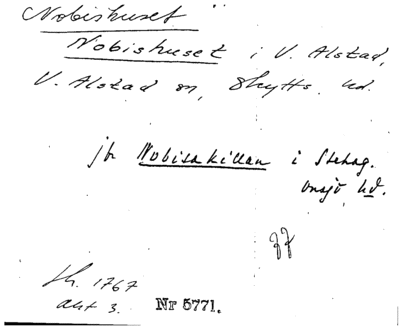 Nobishuset
Nobishuset i V. Alstad,
V. Alstad sn, Skytts hd.
jfr Nobisakillan i Stehag.
Onsjö hd.
Lh. 1767
akt 3. Nr 5771.